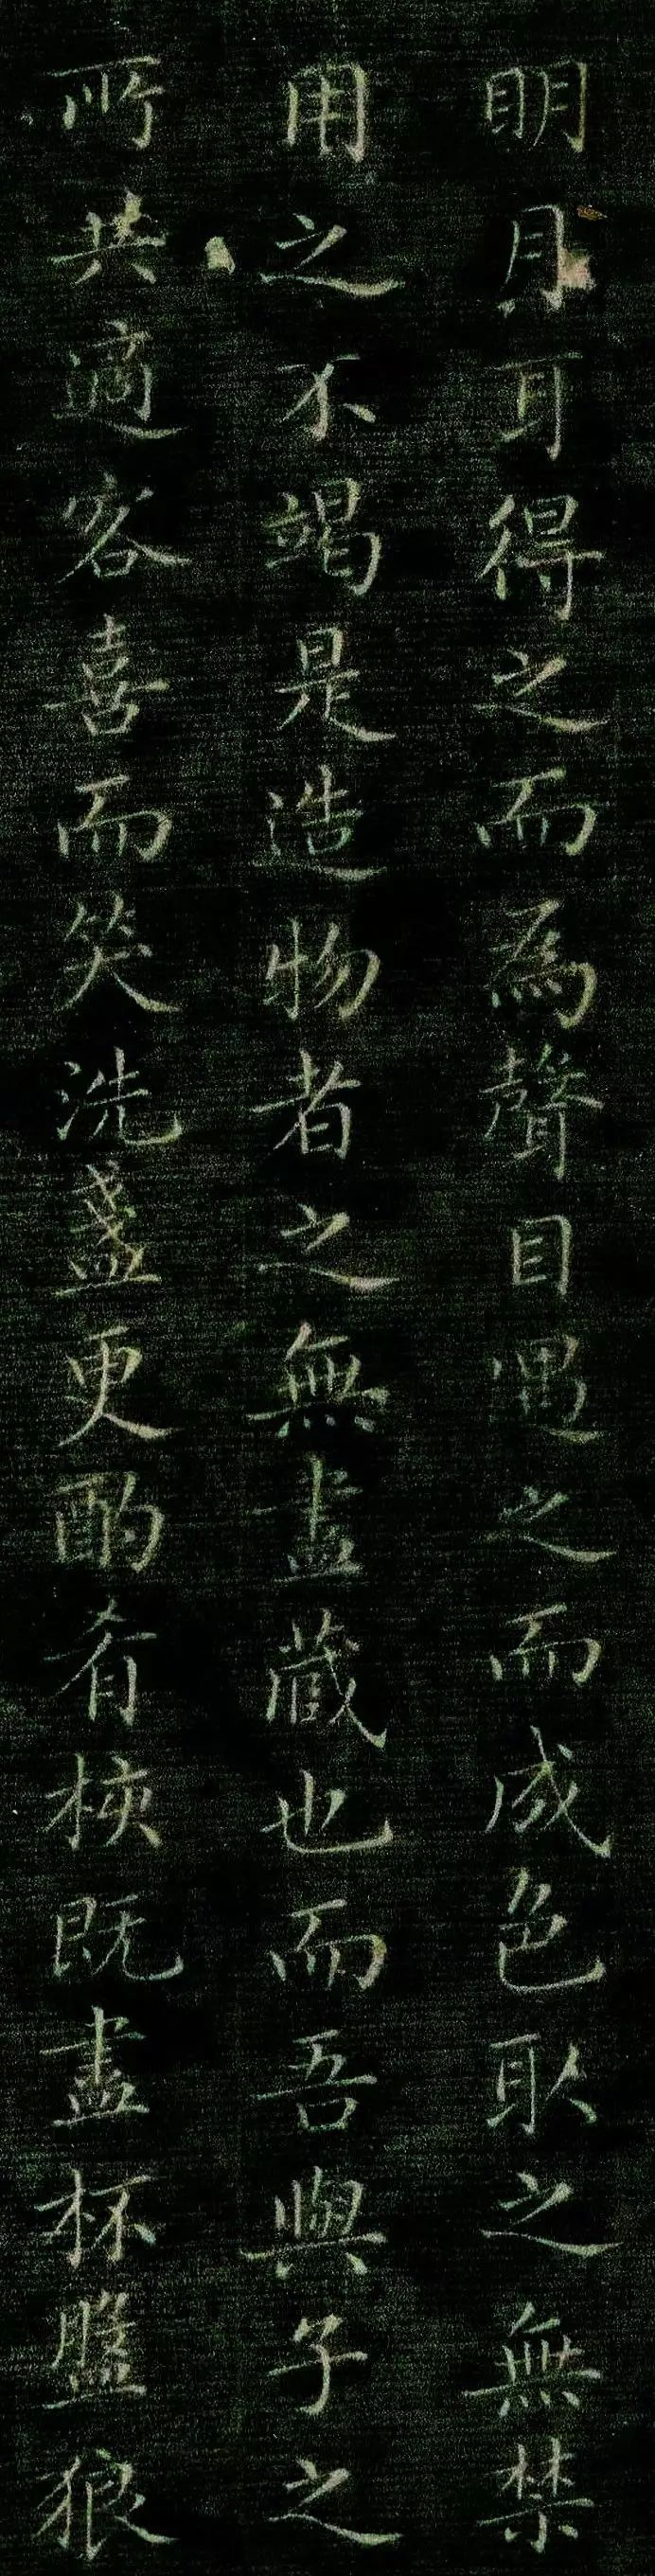 明月耳得之而為聲目遇之而成色取之無禁
用之不竭是造物者之無盡蔵也而吾與子之
所共適客喜而笑洗盞更酌肴核既盡杯盤狼